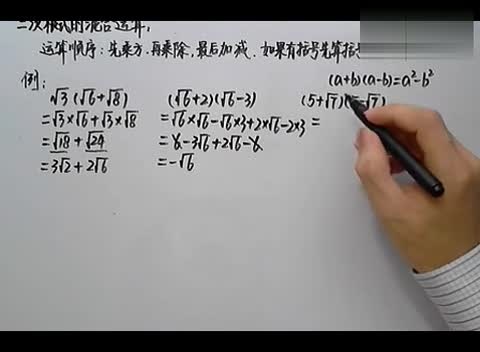 二次根式的混合运算:
运算顺序:先乘方.再乘除,最后加减.如果有括号先算括号
例:
(a+b)(a-b)=a²-b²
√3(√6+√8)
=√3×√6+√3×√8
=√18+√24
=3√2+2√6
(√6+2)(√6-3)
=√6×√6-√6×3+2×√6-2×3
=6-3√6+2√6-6
=-√6
(5+√7)(5-√7)
=